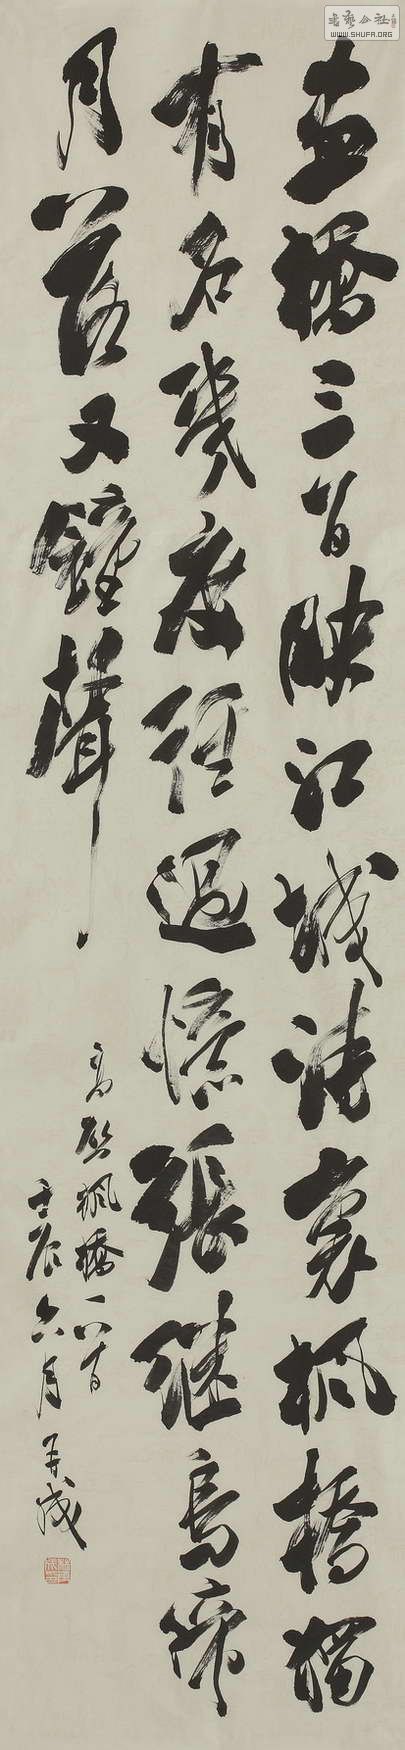 画橋三百映江城詩裏楓橋獨
有名幾度經過憶張継烏啼
月落又鐘聲
高啟楓橋一首
壬辰六月
書藝公社
WWW.SHUFA.ORG